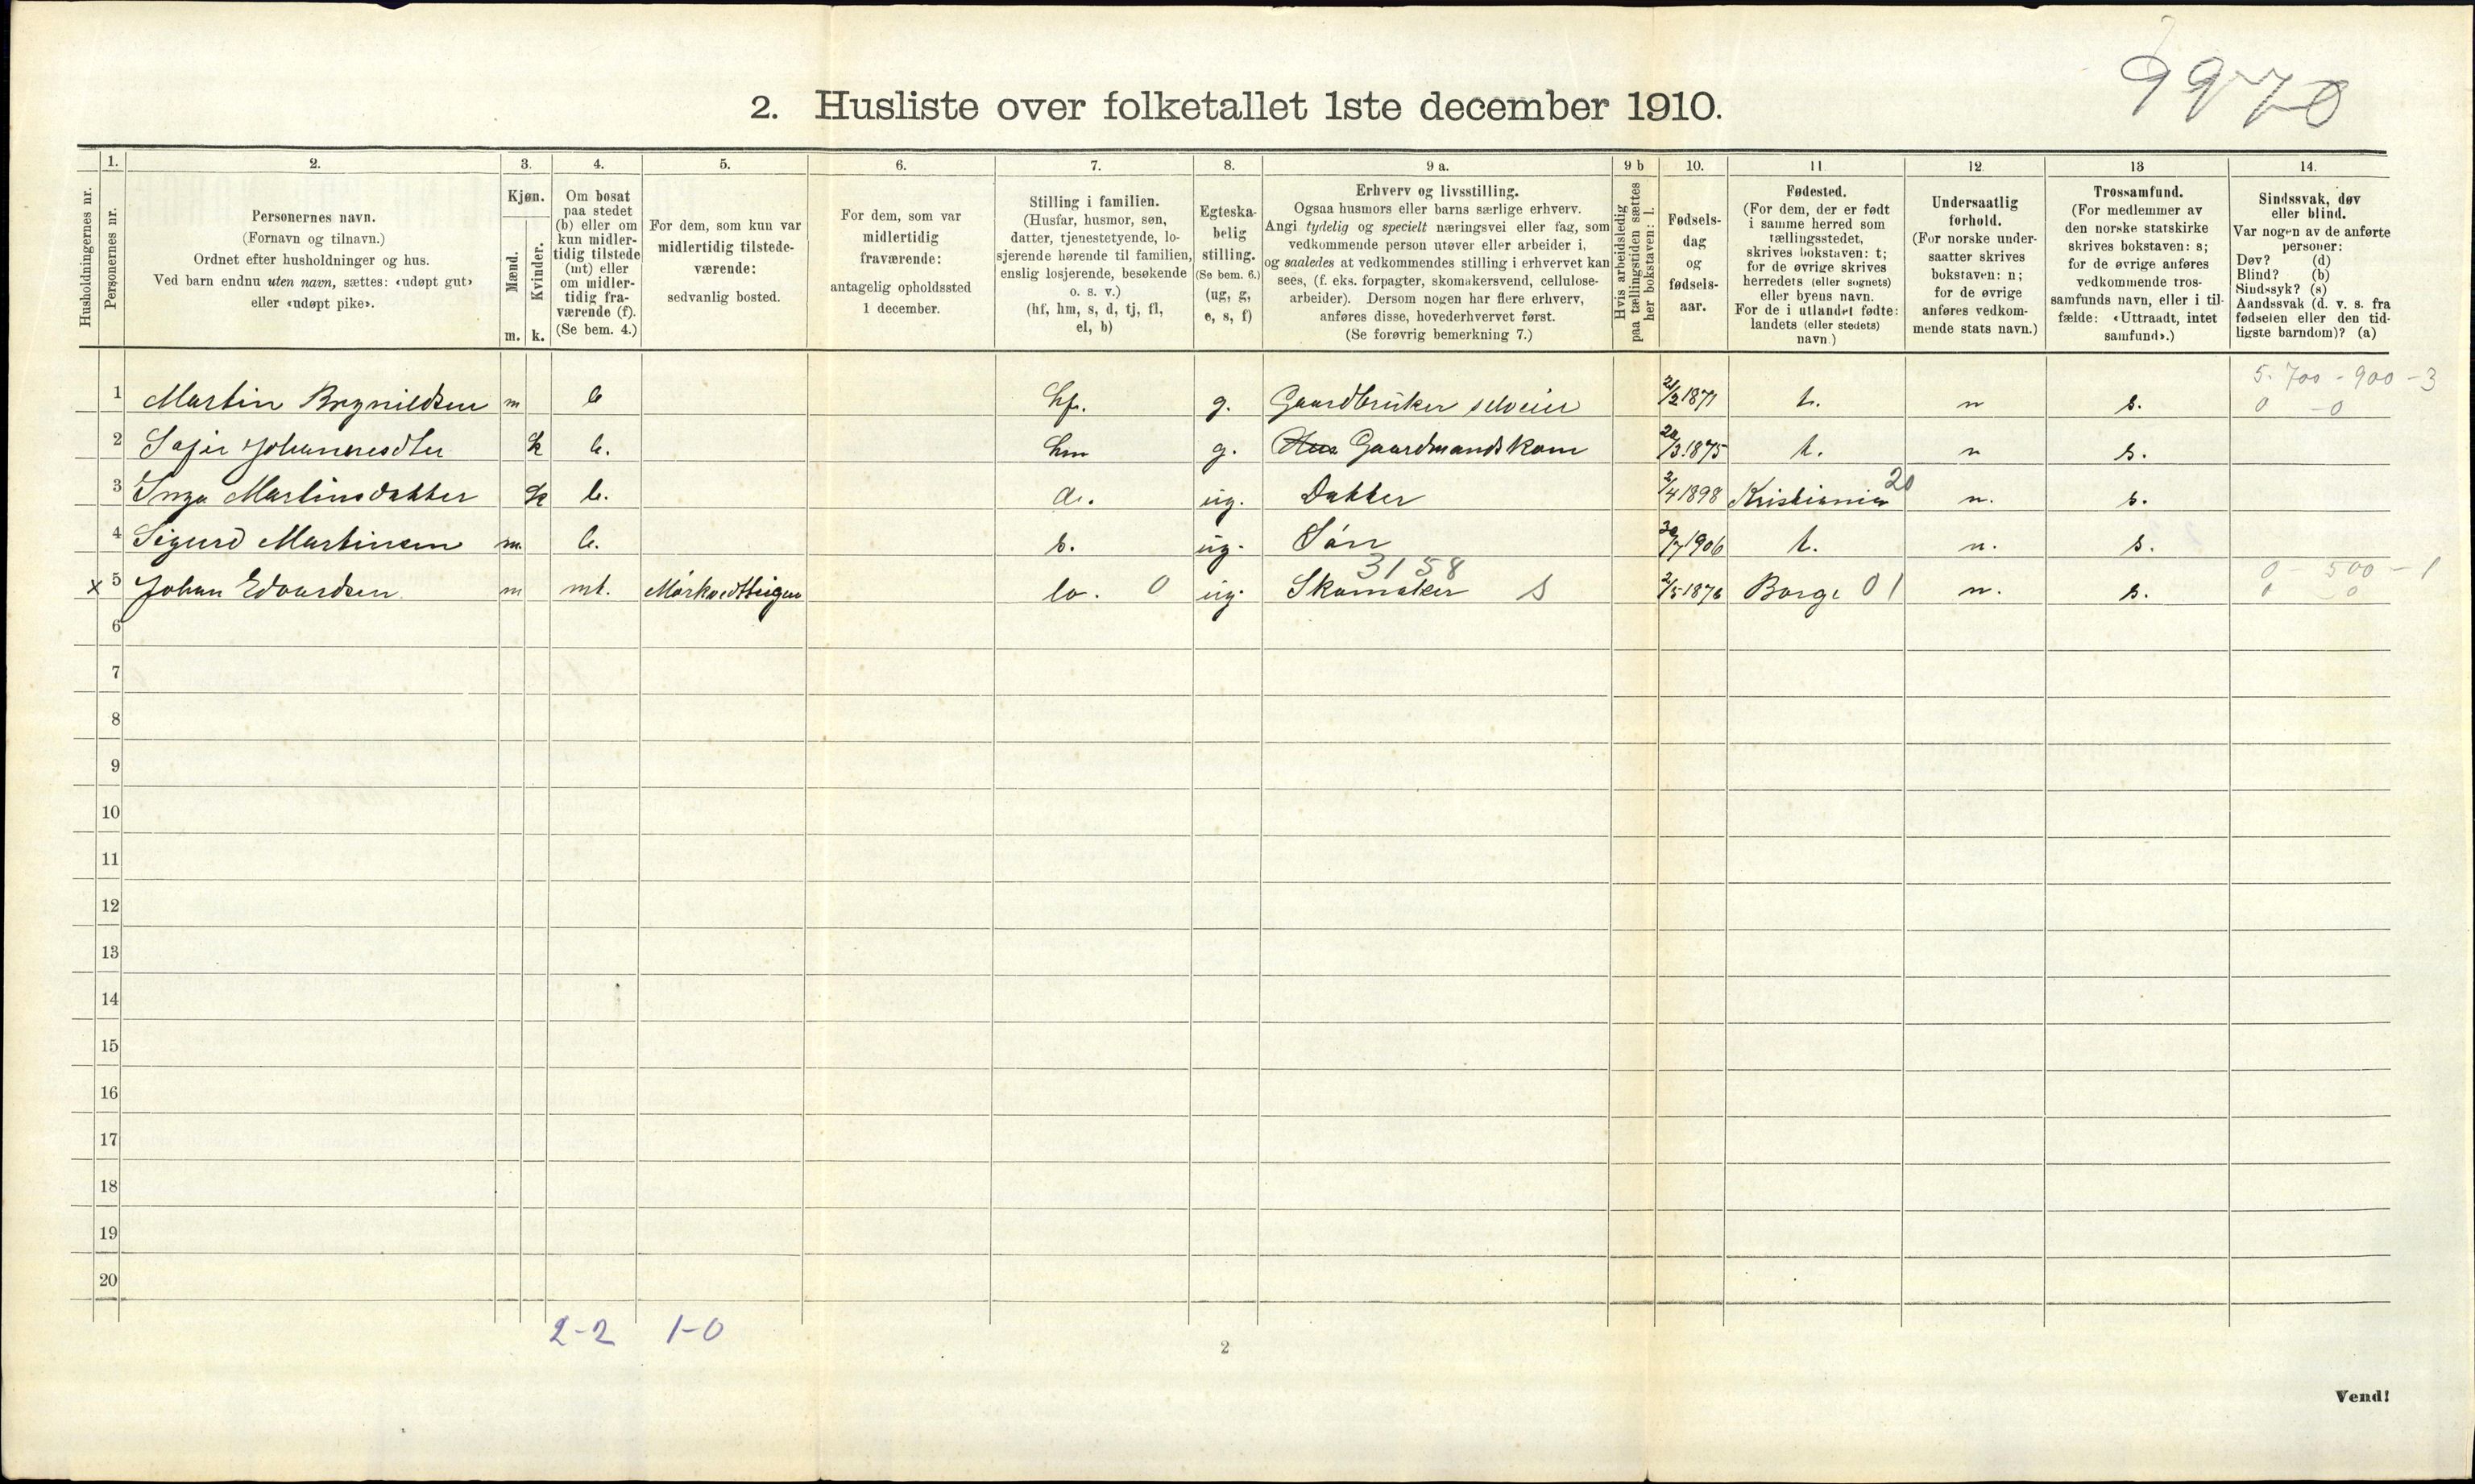 9970
2. Husliste over folketallet 1ste december 1910.
Husholdningernes nr.
1.
Personernes nr.
2.
Personernes navn.
(Fornavn og tilnavn.)
Ordnet efter husholdninger og hus.
Ved barn endnu uten navn, sættes: «udøpt gut»
eller «udøpt pike».
3.
Kjøn.
Mænd.
Kvinder.
m. k.
4.
Om bosat
paa stedet
(b) eller om
kun midler-
tidig tilstede
(mt) eller
om midler-
tidig fra-
værende (f).
(Se bem. 4.)
5.
For dem, som kun var
midlertidig tilstede-
værende:
sedvanlig bosted.
6.
For dem, som var
midlertidig
fraværende:
antagelig opholdssted
1 december.
7.
Stilling i familien.
(Husfar, husmor, søn,
datter, tjenestetyende, lo-
sjerende hørende til familien,
enslig losjerende, besøkende
o. s. v.)
(hf, hm, s, d, tj, fl,
el, b)
8.
Egteska-
belig
stilling.
(Se bem. 6.)
(ug, g,
e, s, f)
9 a.
Erhverv og livsstilling.
Ogsaa husmors eller barns særlige erhverv.
Angi tydelig og specielt næringsvei eller fag, som
vedkommende person utøver eller arbeider i,
og saaledes at vedkommendes stilling i erhvervet kan
sees, (f. eks. forpagter, skomakersvend, cellulose-
arbeider). Dersom nogen har flere erhverv,
anføres disse, hovederhvervet først.
(Se forøvrig bemerkning 7.)
9 b
Hvis arbeidsledig
paa tællingstiden sættes
her bokstaven: l.
10.
Fødsels-
dag
og
fødsels-
aar.
11
Fødested.
(For dem, der er født
i samme herred som
tællingsstedet,
skrives bokstaven: t;
for de øvrige skrives
herredets (eller sognets)
eller byens navn.
For de i utlandet fødte:
landets (eller stedets)
navn.)
12.
Undersaatlig
forhold.
(For norske under-
saatter skrives
bokstaven: n;
for de øvrige
anføres vedkom-
mende stats navn.)
13
Trossamfund.
(For medlemmer av
den norske statskirke
skrives bokstaven: s;
for de øvrige anføres
vedkommende tros-
samfunds navn, eller i til-
fælde: «Uttraadt, intet
samfund».)
14.
Sindssvak, døv
eller blind.
Var nogen av de anførte
personer:
Døv? (d)
Blind? (b)
Sindssyk? (s)
Aandssvak (d. v. s. fra
fødselen eller den tid-
ligste barndom)? (a)
5-700-900-3
1 Martin Brynildsen m b hf. g. Gaardbruker selveier 21/2 1871 t. n s. 0-0
2 Johannesdter k b. hm g. Hus Gaardmandskone 20/3 1875 t. n s.
3 Inga Martinsdatter k b. d. ug. Datter 2/4 1898 Kristiania 20 n. s.
4 Sigurd Martinsen m. b. s. ug. Søn 30/7 1906 t. n. s.
3158 0-500-1
x 5 Johan Edvardsen m mt. lo. 0 ug. Skomaker S 2/5 1876 Borge 01 n. s. 0 0
6
7
8
9
10
11
12
13
14
15
16
17
18
19
20
2-2 1-0
2
Vend!